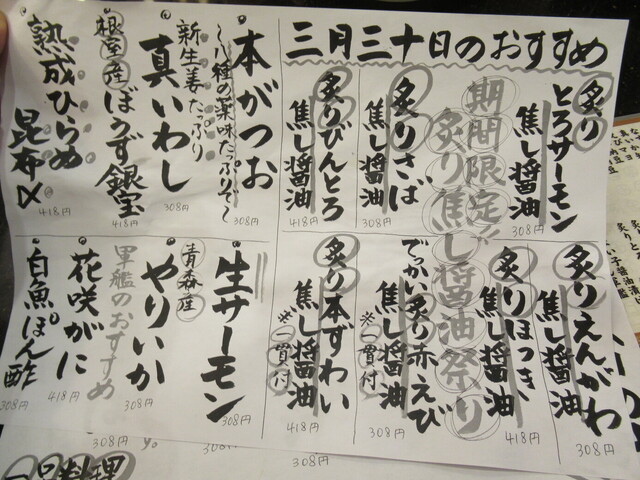 三月三十日のおすすめ
期間限定!
炙り焦し醤油祭り
炙り
とろサーモン
焦し醤油
308円
炙りさば
焦し醤油
308円
炙りびんとろ
焦し醤油
418円
炙りえんがわ
焦し醤油
308円
炙りほっき
焦し醤油
418円
でっかい炙り赤えび
焦し醤油
※一貫付
308円
炙り本ずわい
焦し醤油
※一貫付
418円
本がつお
〜八種の薬味たっぷりで〜
308円
新生姜たっぷり
真いわし
308円
根室産
ぼうず銀宝
418円
熟成ひらめ
昆布〆
418円
生サーモン
308円
青森産
やりいか
308円
軍艦のおすすめ
花咲がに
418円
白魚ぽん酢
308円
308円
308円
一品料理